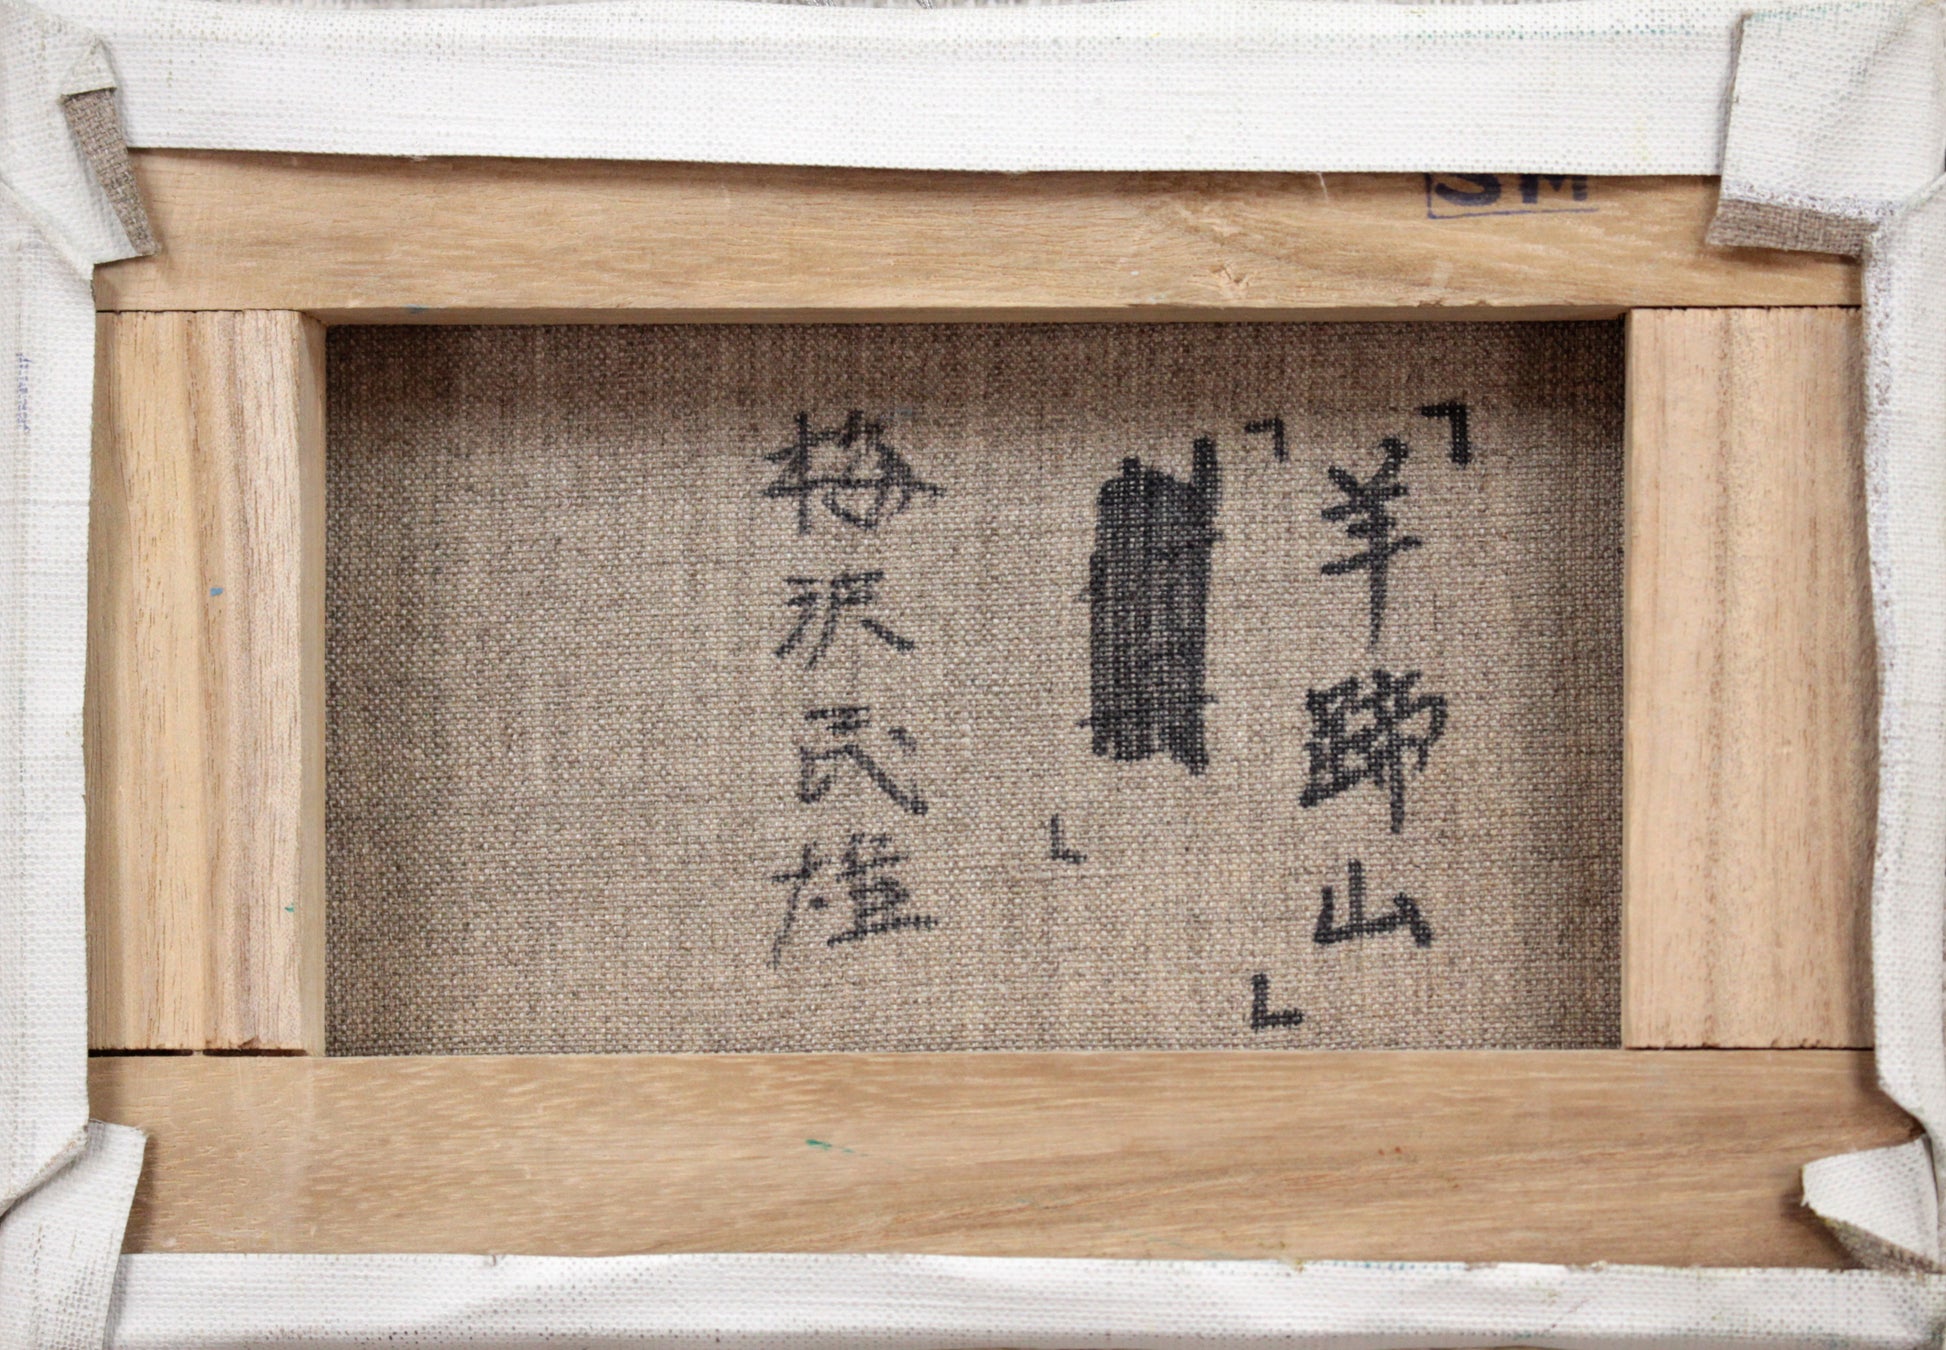 SM
「羊蹄山」
「　」
梅沢民雄